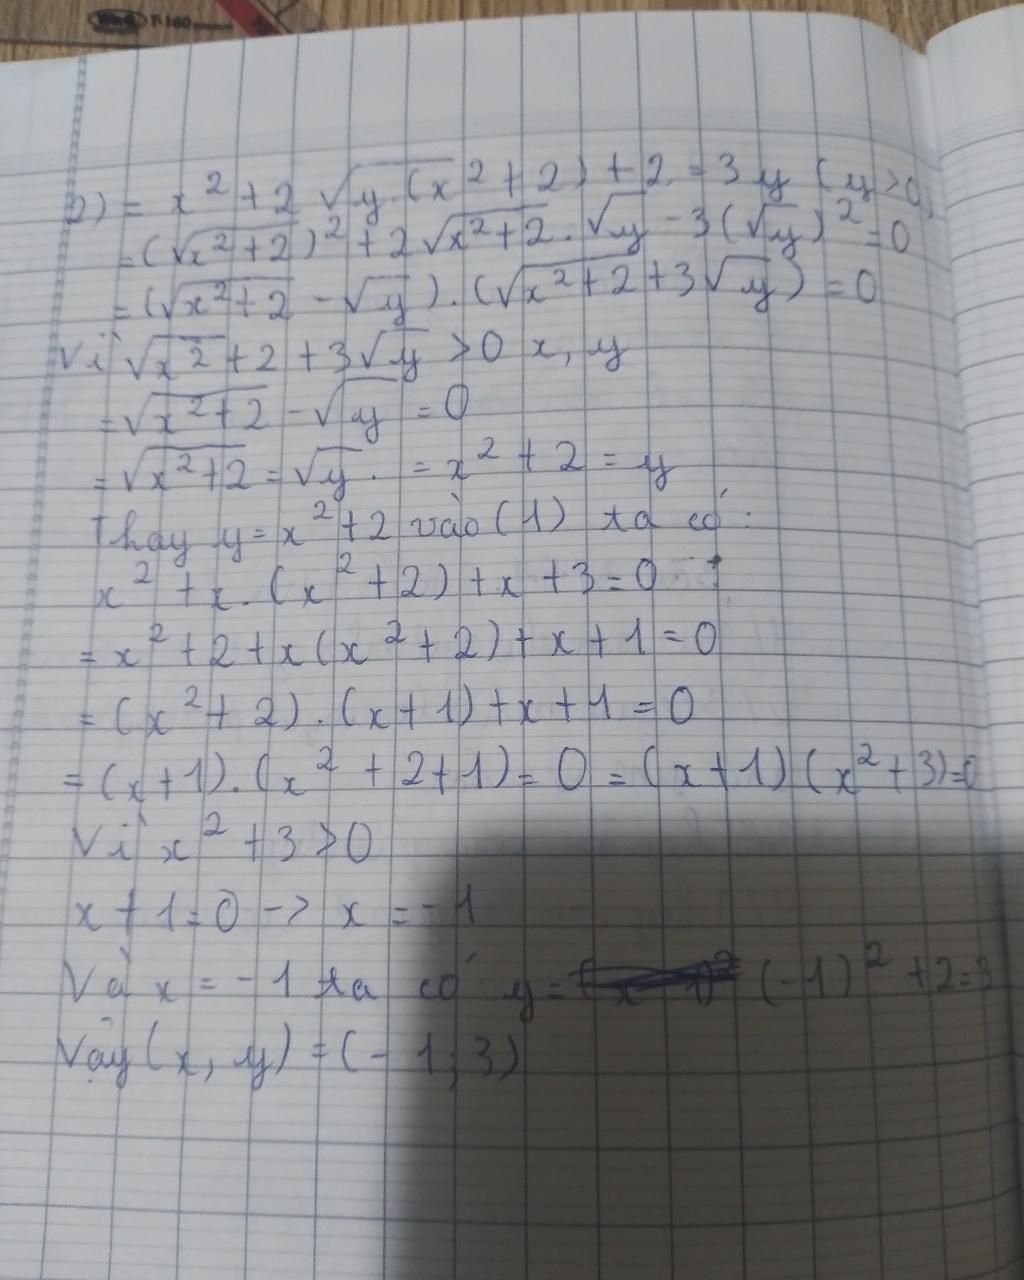 T-160
2) = x² + 2 √y.(x² + 2) + 2 = 3y (y > 0)
= (√x² + 2)² + 2 √x² + 2 . √y - 3(√y)² = 0
= (√x² + 2 - √y) . (√x² + 2 + 3√y) = 0
Vì √x² + 2 + 3√y > 0 x, y
= √x² + 2 - √y = 0
= √x² + 2 = √y . = x² + 2 = y
Thay y = x² + 2 vào (1) ta có :
x² + x . (x² + 2) + x + 3 = 0
= x² + 2 + x(x² + 2) + x + 1 = 0
= (x² + 2) . (x + 1) + x + 1 = 0
= (x + 1) . (x² + 2 + 1) = 0 = (x + 1) (x² + 3) = 0
Vì x² + 3 > 0
x + 1 = 0 -> x = - 1
Và x = - 1 ta có y = (-1)² + 2 = 3
Vậy (x, y) = (- 1 ; 3)